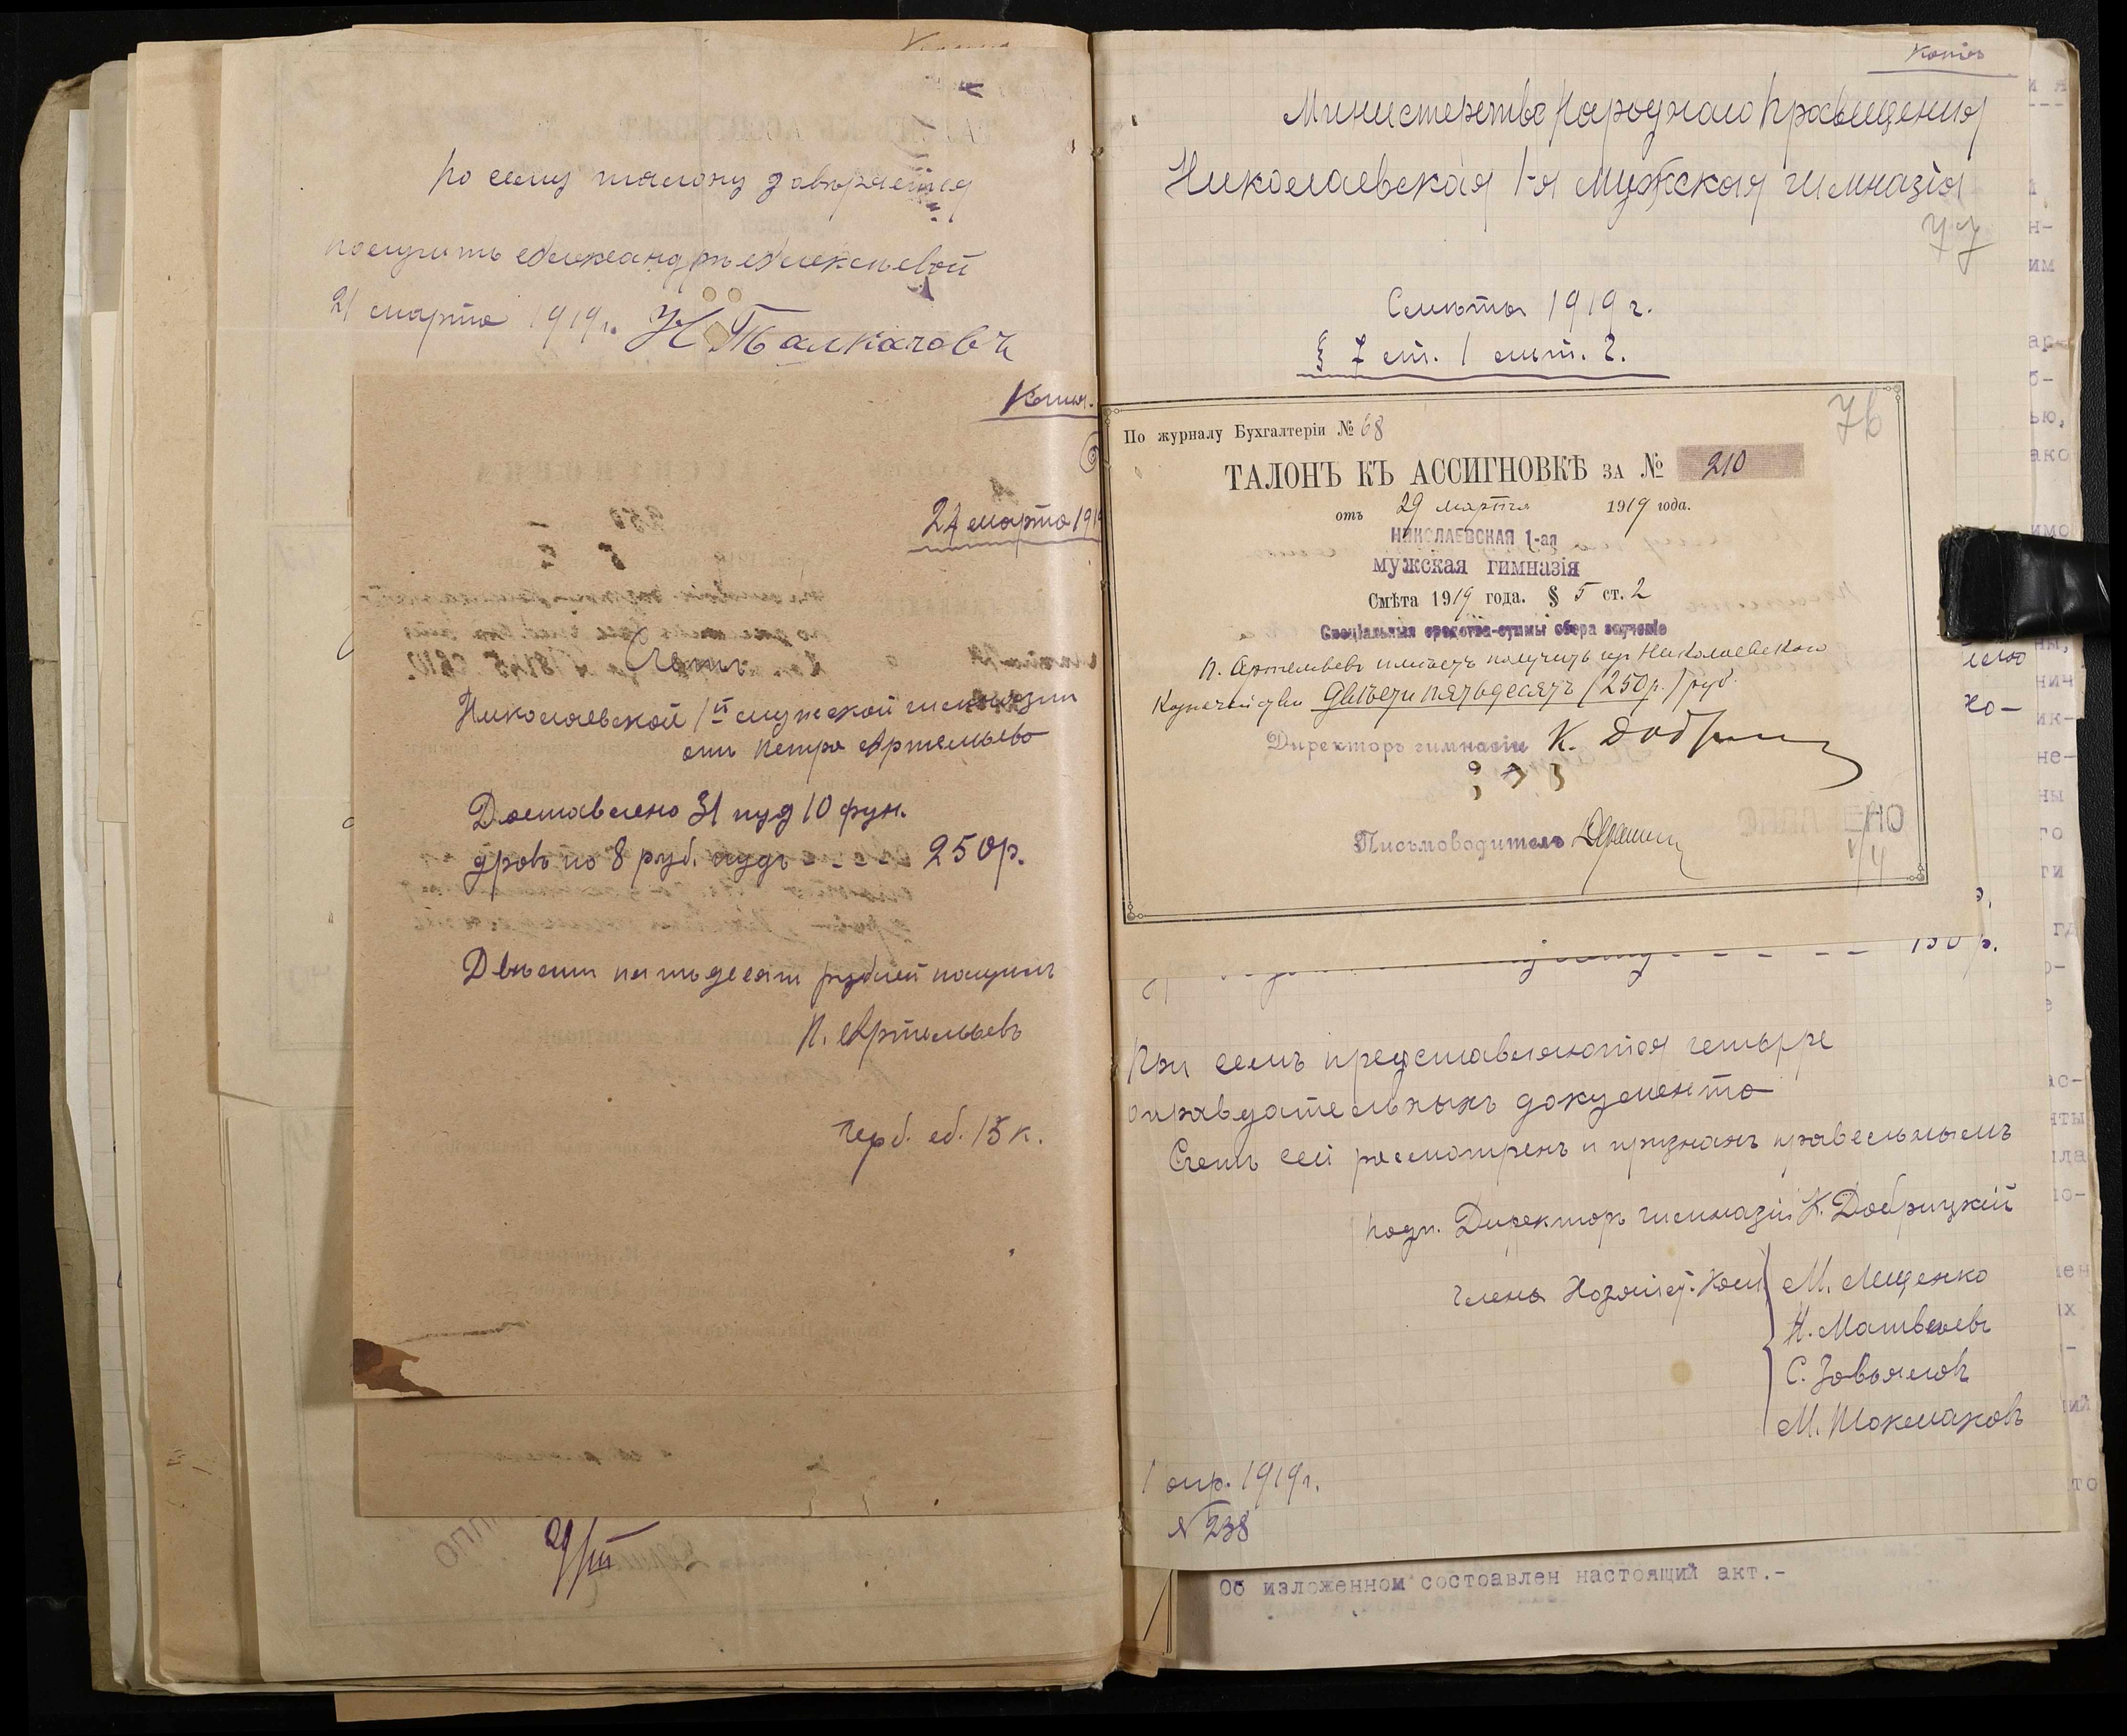 По сему талону довѣряется
получить Александрѣ Алексѣевой
21 марта 1919 г. Н. Талкачовъ
Копія.
24 марта 1919
Счетъ
Николаевской 1й мужской гимназіи
отъ Петра Артемьева
Доставлено 31 пуд 10 фун.
дровъ по 8 руб. пудъ - - - 250 р.
Двѣсти пятьдесятъ рублей получилъ
П. Артемьевъ
Герб. сб. 15 к.
29/III
Копія
Министерство Народнаго Просвѣщенія
Николаевская 1-я мужская гимназія
77
Смѣта 1919 г.
§ 7 ст. 1 лит. 2.
76
По журналу Бухгалтеріи № 68
ТАЛОНЪ КЪ АССИГНОВКѢ ЗА № 210
отъ 29 марта 1919 года.
НИКОЛАЕВСКАЯ 1-ая
мужская гимназія
Смѣта 1919 года. § 5 ст. 2
Спеціальныя средства-суммы сбора за ученіе
П. Артемьевъ имѣетъ получить изъ Николаевскаго
Казначейства Двѣсти пятьдесятъ (250 р.) руб.
Директоръ гимназіи К. Добр
Письмоводитель
150 р.
При семъ представляются четыре
оправдательныхъ документа
Счетъ сей разсмотренъ и признанъ правельнымъ
Подп. Директоръ гимназіи К. Добрицкій
Члены Хозяйст. Ком. М. Мищенко
Н. Матвѣевъ
С. Завьяловъ
М. Шокмаковъ
1 апр. 1919 г.
№ 238
Об изложенном состоавлен настоящий акт.-